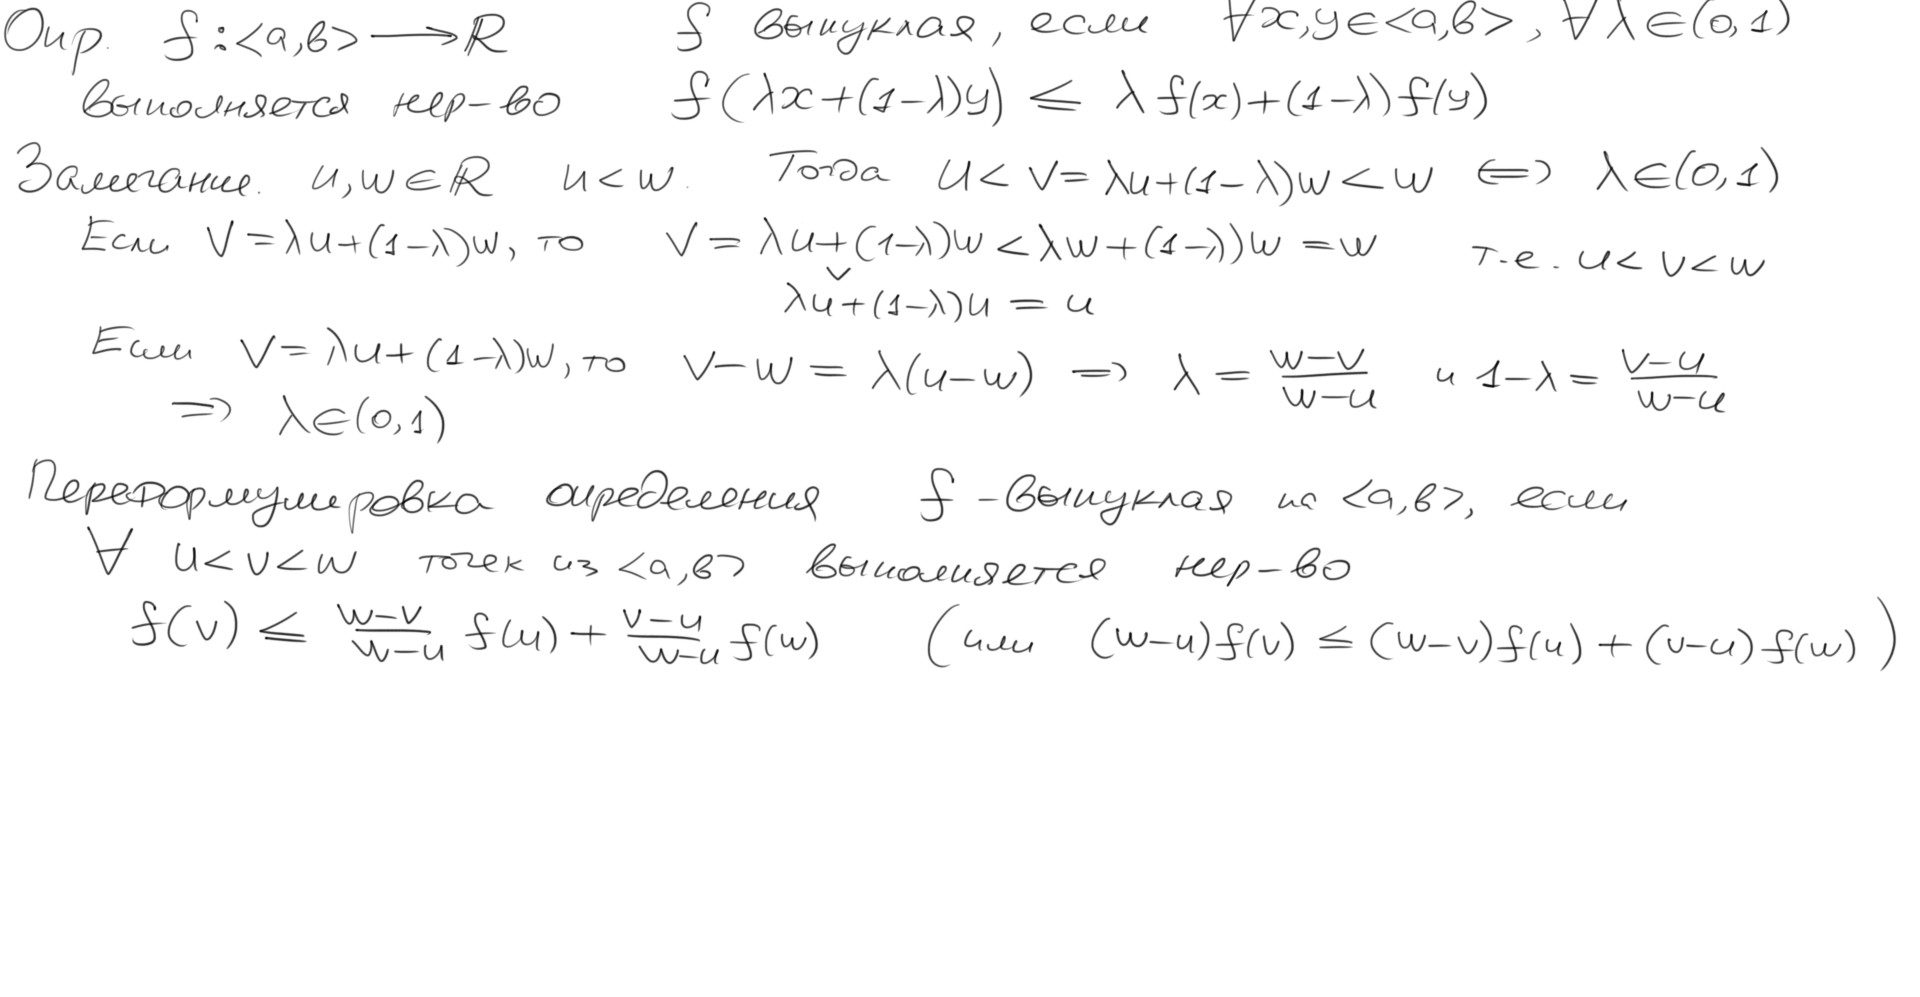 Опр. f:<a,b>⟶ℝ f выпуклая, если ∀x,y∈<a,b>, ∀λ∈(0,1)
выполняется нер-во f(λx+(1-λ)y) ≤ λf(x)+(1-λ)f(y)
Замечание. u,w∈ℝ u<w. Тогда u<v=λu+(1-λ)w<w ⟺ λ∈(0,1)
Если v=λu+(1-λ)w, то v=λu+(1-λ)w<λw+(1-λ))w=w т.е. u<v<w
∨
λu+(1-λ)u=u
Если v=λu+(1-λ)w, то v-w=λ(u-w) ⟹ λ=(w-v)/(w-u) и 1-λ=(v-u)/(w-u)
⟹ λ∈(0,1)
Переформулировка определения f-выпуклая на <a,b>, если
∀ u<v<w точек из <a,b> выполняется нер-во
f(v) ≤ (w-v)/(w-u) f(u) + (v-u)/(w-u) f(w) (или (w-u)f(v) ≤ (w-v)f(u)+(v-u)f(w))